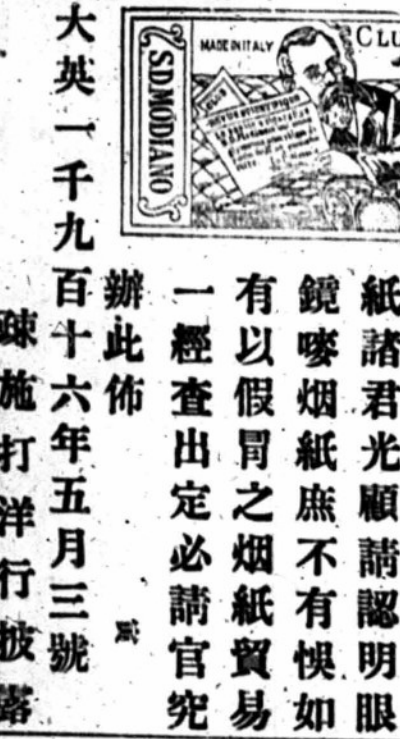 MADE IN ITALY
CLU
S.D.MODIANO
紙諸君光顧請認明眼
鏡嘜烟紙庶不有悞如
有以假冒之烟紙貿易
一經查出定必請官究
辦此佈
大英一千九百十六年五月三號
疎施打洋行披露